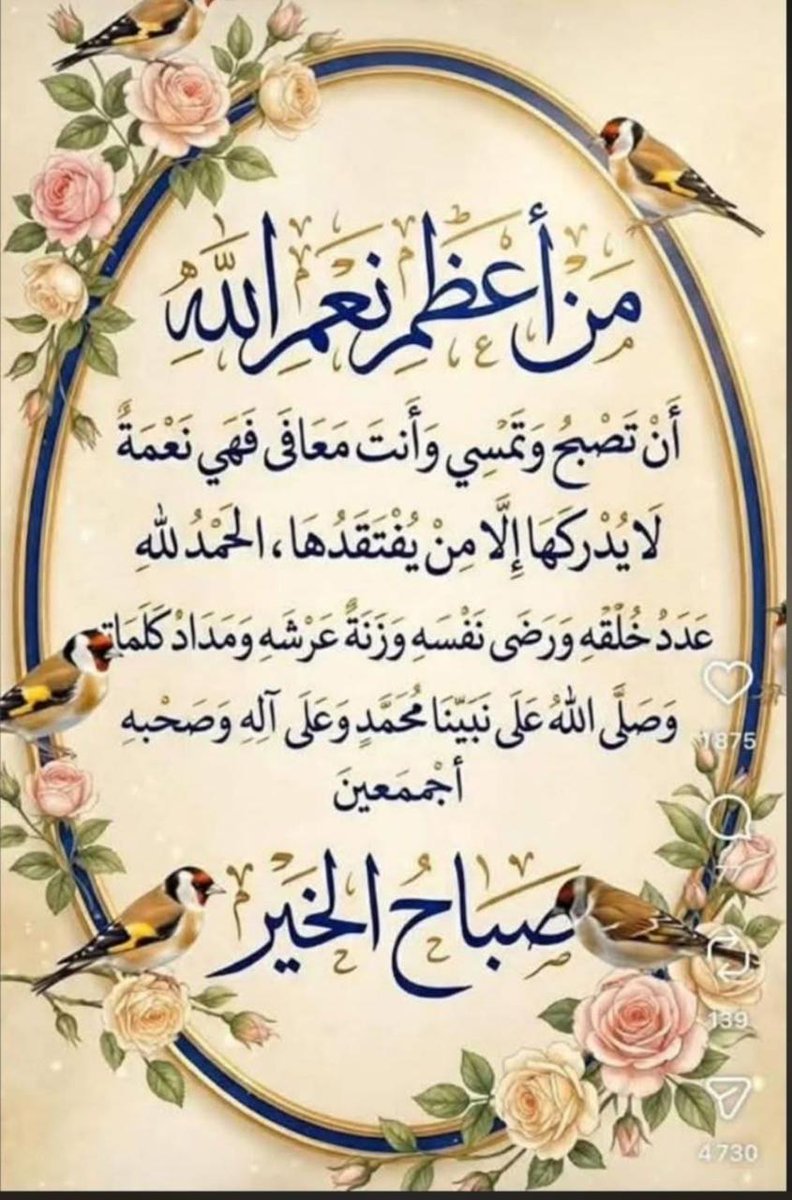 مِنْ أَعْظَمِ نِعَمِ اللَّهِ
أَنْ تَصْبحُ وَتَمْسِي وَأَنتَ مَعَافَى فَهَي نَعْمَةٌ
لَا يُدْركَهَا إِلَّا مِنْ يُفْتَقَدُهَا، الحَمْدُ للهِ
عَدَدُ خُلْقهِ وَرَضَى نَفْسَهِ وَزَنَةٌ عَرْشَهِ وَمَدَادْ كَلَمَاتهِ
وَصَلَّى اللهُ عَلَى نَبَيّنَا مُحَمَّدٍ وَعَلَى آلِهِ وَصَحْبهِ
أجْممَعينَ
صَبَاحُ الخَيْر
1875
77
139
4730